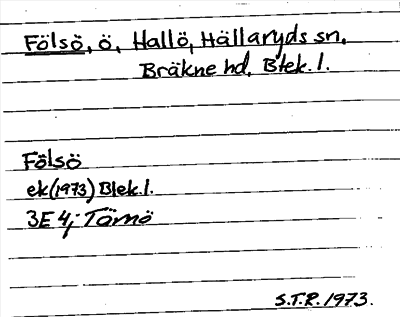 Fölsö, ö, Hallö, Hällaryds sn.
Bräkne hd, Blek. l.
Fölsö
ek (1973) Blek. l.
3E 4j Tärnö
S.T.R. 1973.